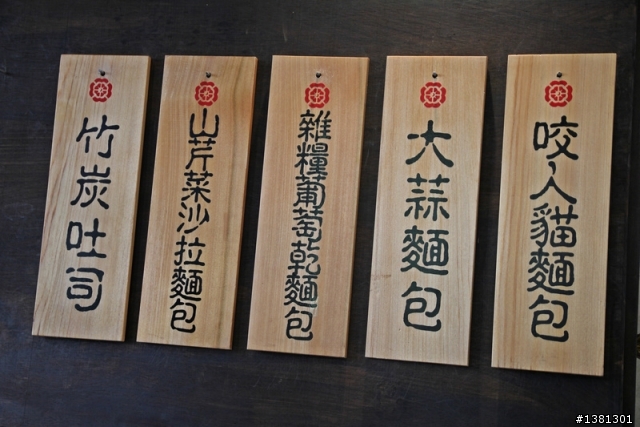 咬人貓麵包
大蒜麵包
雜糧葡萄乾麵包
山芹菜沙拉麵包
竹炭吐司
#1381301